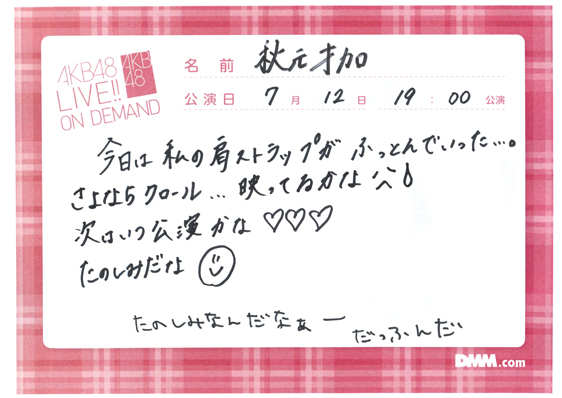 AKB48
LIVE!!
ON DEMAND
AKB
48
名前 秋元才加
公演日 7月 12日 19:00 公演
今日は私の肩ストラップが ふっとんでいった…。
さよならクロール…映ってるかな
次はいつ公演かな♡♡♡
たのしみだな
たのしみなんだなぁー
だっふんだ
DMM.com